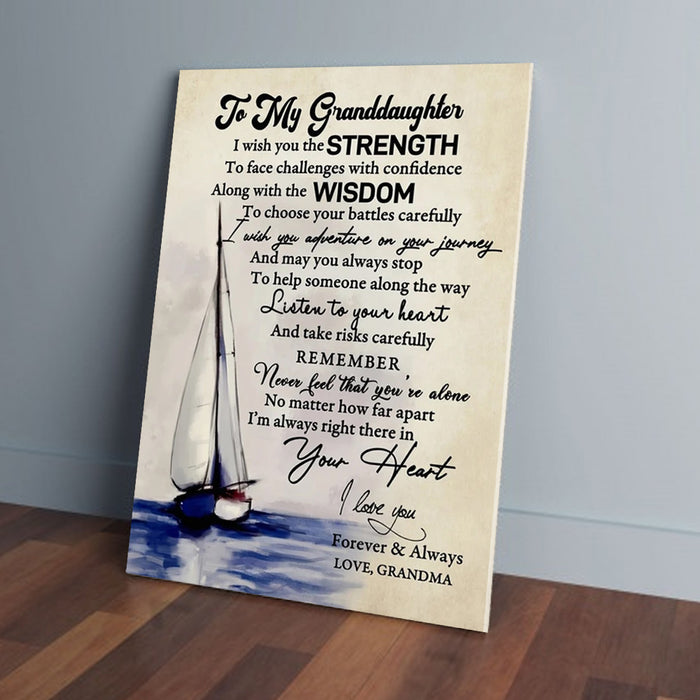 To My Granddaughter
I wish you the STRENGTH
To face challenges with confidence
Along with the WISDOM
To choose your battles carefully
I wish you adventure on your journey
And may you always stop
To help someone along the way
Listen to your heart
And take risks carefully
REMEMBER
Never feel that you're alone
No matter how far apart
I'm always right there in
Your Heart
I love you
Forever & Always
LOVE, GRANDMA